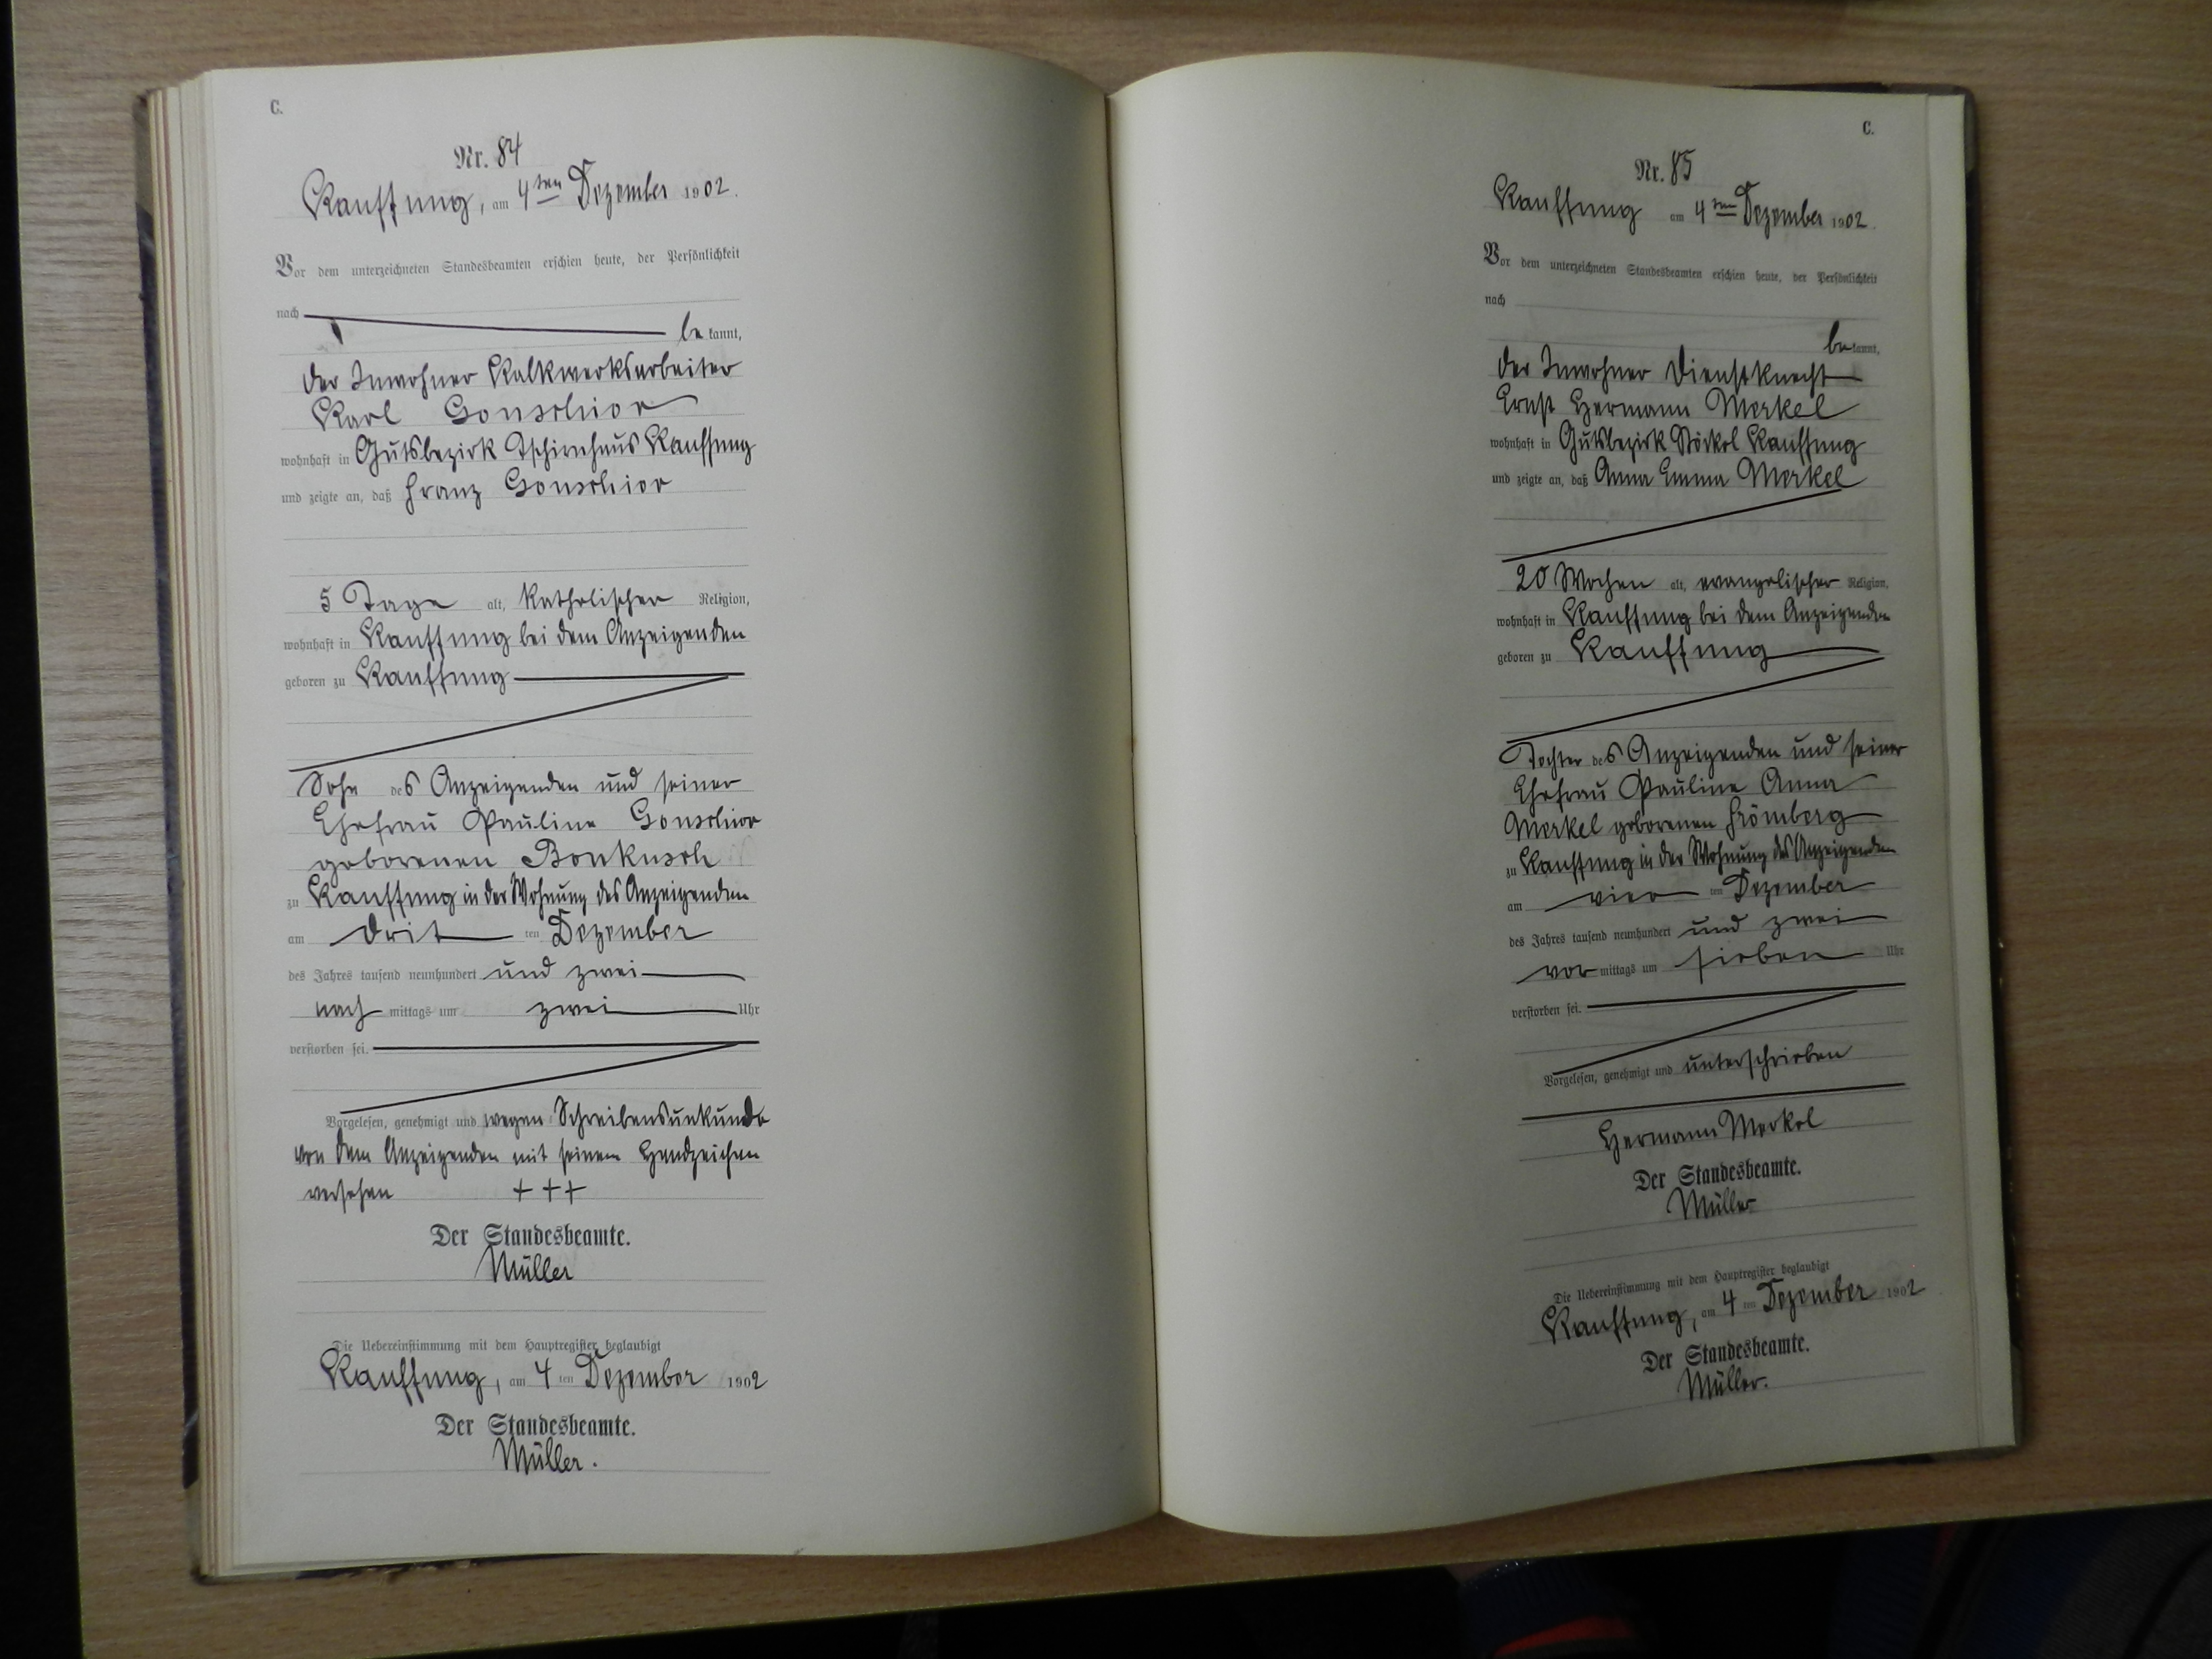 C.
Nr. 84
Kauffung, am 4ten Dezember 1902.
Vor dem unterzeichneten Standesbeamten erschien heute, der Persönlichkeit
nach
be kannt,
der Inwohner Kalkwerksarbeiter
Karl Gonschior
wohnhaft in Gutsbezirk Tschirnhaus Kauffung
und zeigte an, daß Franz Gonschior
5 Tage alt, katholischer Religion,
wohnhaft in Kauffung bei dem Anzeigenden
geboren zu Kauffung
Sohn des Anzeigenden und seiner
Ehefrau Pauline Gonschior
geborenen
zu Kauffung in der Wohnung des Anzeigenden
am drit ten Dezember
des Jahres tausend neunhundert und zwei
nach mittags um zwei Uhr
verstorben sei.
Vorgelesen, genehmigt und wegen Schreibensunkunde
von dem Anzeigenden mit seinem Handzeichen
versehen +++
Der Standesbeamte.
Müller
Die Uebereinstimmung mit dem Hauptregister beglaubigt
Kauffung, am 4 ten Dezember 1902
Der Standesbeamte.
Müller.
C.
Nr. 85
Kauffung am 4ten Dezember 1902.
Vor dem unterzeichneten Standesbeamten erschien heute, der Persönlichkeit
nach
be kannt,
der Inwohner Dienstknecht
Ernst Hermann Merkel
wohnhaft in Gutsbezirk Stöckel Kauffung
und zeigte an, daß Anna Emma Merkel
20 Wochen alt, evangelischer Religion,
wohnhaft in Kauffung bei dem Anzeigenden
geboren zu Kauffung
Tochter des Anzeigenden und seiner
Ehefrau Pauline Anna
Merkel geborenen Frömberg
zu Kauffung in der Wohnung des Anzeigenden
am vier ten Dezember
des Jahres tausend neunhundert und zwei
vor mittags um sieben Uhr
verstorben sei.
Vorgelesen, genehmigt und unterschrieben
Hermann Merkel
Der Standesbeamte.
Müller
Die Uebereinstimmung mit dem Hauptregister beglaubigt
Kauffung, am 4 ten Dezember 1902
Der Standesbeamte.
Müller.